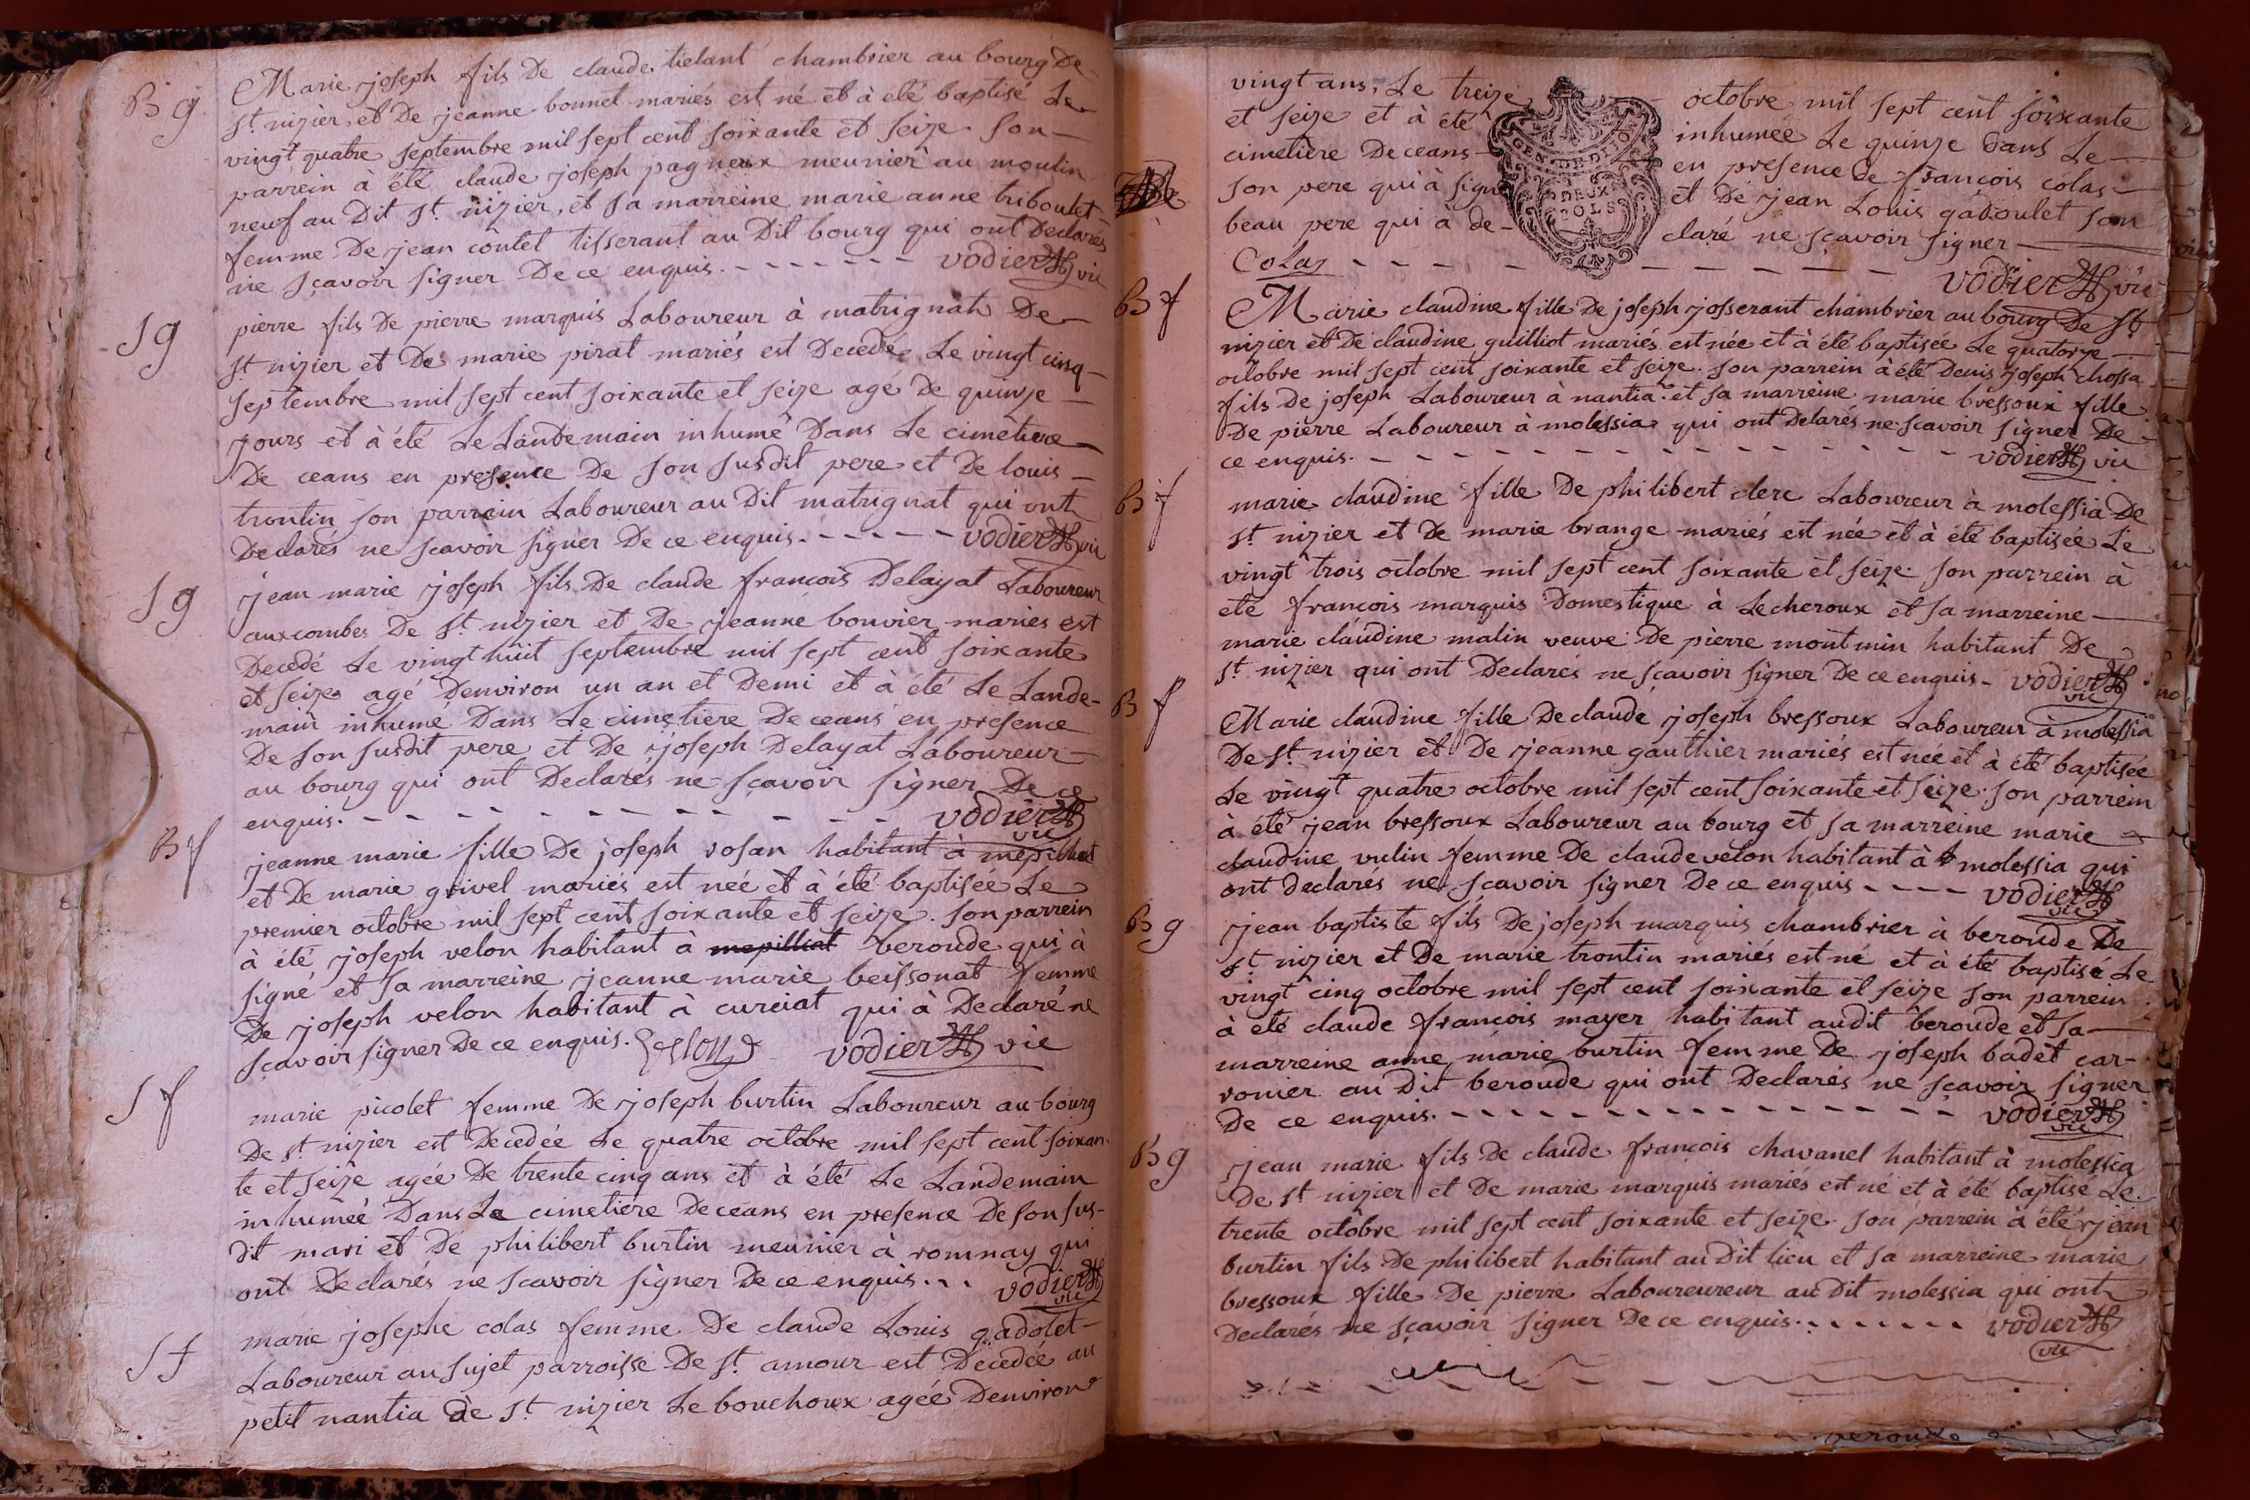 B g
Marie joseph fils De claude tielant chambrier au bourg De
st. nizier, et De jeanne bonnet mariés est né et à eté baptisé Le
vingt quatre septembre mil sept cent soixante et seize. son
parrein à été claude joseph pagneux meunier au moulin
neuf au Dit st. nizier, et sa marreine marie anne triboulet
femme De jean contet tisserant au Dit bourg qui ont Declarés
ne sçavoir signer De ce enquis. vodier vic
S g
pierre fils De pierre marquis Laboureur à matrignat De
st nizier et De marie pirat mariés est Decedé Le vingt cinq
septembre mil sept cent soixante et seize agé De quinze
jours et à été Le Landemain inhumé Dans Le cimetiere
De ceans en presence De son susdit pere et De louis
trontin son parrein Laboureur au Dit matrignat qui ont
Declarés ne scavoir signer De ce enquis. vodier vic
S g
jean marie joseph fils De claude francois Delayat Laboureur
aux combes De st. nizier et De jeanne bouvier mariés est
Decedé Le vingt huit septembre mil sept cent soixante
et seize agé Denviron un an et Demi et à été Le Lande-
main inhumé Dans Le cimetiere De ceans en presence
De son susdit pere et De joseph Delayat Laboureur
au bourg qui ont Declarés ne sçavoir signer De ce
enquis. vodier vic
B f
jeanne marie fille De joseph rosan habitant à mepillat
et De marie grivel mariés est née et à été baptisée Le
premier octobre mil sept cent soixante et seize. son parrein
à été joseph velon habitant à mepilliat beroude qui à
signé et sa marreine jeanne marie beissonat femme
De joseph velon habitant à curciat qui à Declaré ne
sçavoir signer De ce enquis. vodier vic
S f
marie picolet femme De joseph burtin Laboureur au bourg
De st. nizier est Decedée Le quatre octobre mil sept cent soixan-
te et seize agée De trente cinq ans et à été Le Landemain
inhumée Dans Le cimetiere De ceans en presence De son sus-
dit mari et De philibert burtin meunier à romnay qui
ont Declarés ne scavoir signer De ce enquis. vodier vic
S f
marie josephe colas femme De claude Louis gadolet
Laboureur au sujet parroisse De st. amour est Decedée au
petit nantia De st. nizier Le bouchoux agée Denviron
vingt ans, Le treize octobre mil sept cent soixante
et seize et à été inhumée Le quinze Dans Le
cimetiere De ceans en presence De françois colas
son pere qui à signé et De jean Louis gaboulet son
beau pere qui à de- claré ne sçavoir signer
GEN DE DIJON
DEUX
SOLS
Colas vodier vic
B f
Marie claudine fille De joseph josserant chambrier au bourg De st
nizier et De claudine guilliot mariés est née et à été baptisée Le quatorze
octobre mil sept cent soixante et seize. son parrein à été Denis joseph chossa
fils De joseph Laboureur à nantia. et sa marreine marie bressoux fille
De pierre Laboureur à molessia qui ont Delarés ne scavoir signer De
ce enquis. vodier vic
B f
marie claudine fille De philibert clerc Laboureur à molessia De
st. nizier et De marie brange mariés est née et à été baptisée Le
vingt trois octobre mil sept cent soixante et seize. son parrein à
eté françois marquis Domestique à Lecheroux et sa marreine
marie claudine malin veuve De pierre montmin habitant De
st. nizier qui ont Declares ne sçavoir signer De ce enquis vodier vic
B f
Marie claudine fille De claude joseph bressoux Laboureur à molessia
De st. nizier et De jeanne gauthier mariés est née et à été baptisée
Le vingt quatre octobre mil sept cent soixante et seize. son parrein
à été jean bressoux Laboureur au bourg et sa marreine marie
claudine vulin femme De claude velon habitant à molessia qui
ont declarés ne sçavoir signer De ce enquis vodier vic
B g
jean baptiste fils De joseph marquis chambrier à beroude De
st. nizier et De marie trontin mariés est né et à été baptisé Le
vingt cinq octobre mil sept cent soixante et seize son parrein
à été claude françois mayer habitant audit beroude et sa
marreine anne marie burtin femme De joseph badet car-
ronier au Dit beroude qui ont Declarés ne sçavoir signer
De ce enquis. vodier vic
B g
jean marie fils De claude françois chavanel habitant à molessia
De st nizier et De marie marquis mariés est né et à été baptisé Le
trente octobre mil sept cent soixante et seize. son parrein à été jean
burtin fils De philibert habitant au Dit lieu et sa marreine marie
bressoux fille De pierre Laboureureur au Dit molessia qui ont
Declarés ne sçavoir signer De ce enquis. vodier vic
beroude